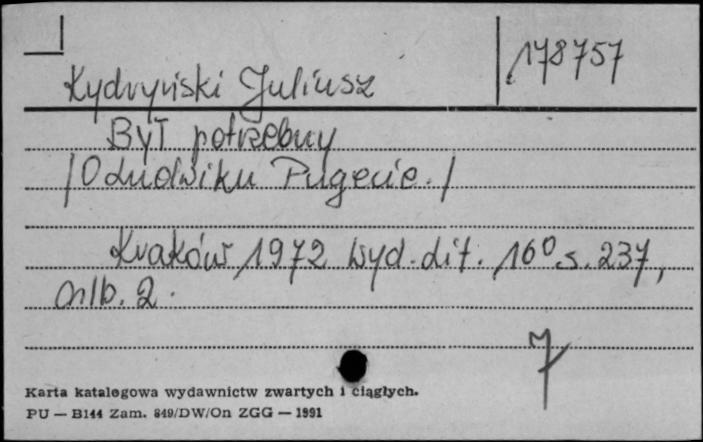 178757
Kydryński Juliusz
Był potrzebny
/O Ludwiku Pugecie./
Kraków 1972 Wyd. Lit. 16° s. 237,
nlb. 2.
7
Karta katalogowa wydawnictw zwartych i ciągłych.
PU — B144 Zam. 849/DW/On ZGG — 1991